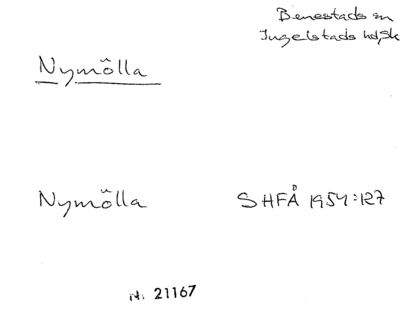 Benestads sn
Ingelstads hd, Sk
Nymölla
Nymölla SHFÅ 1954:127
N. 21167